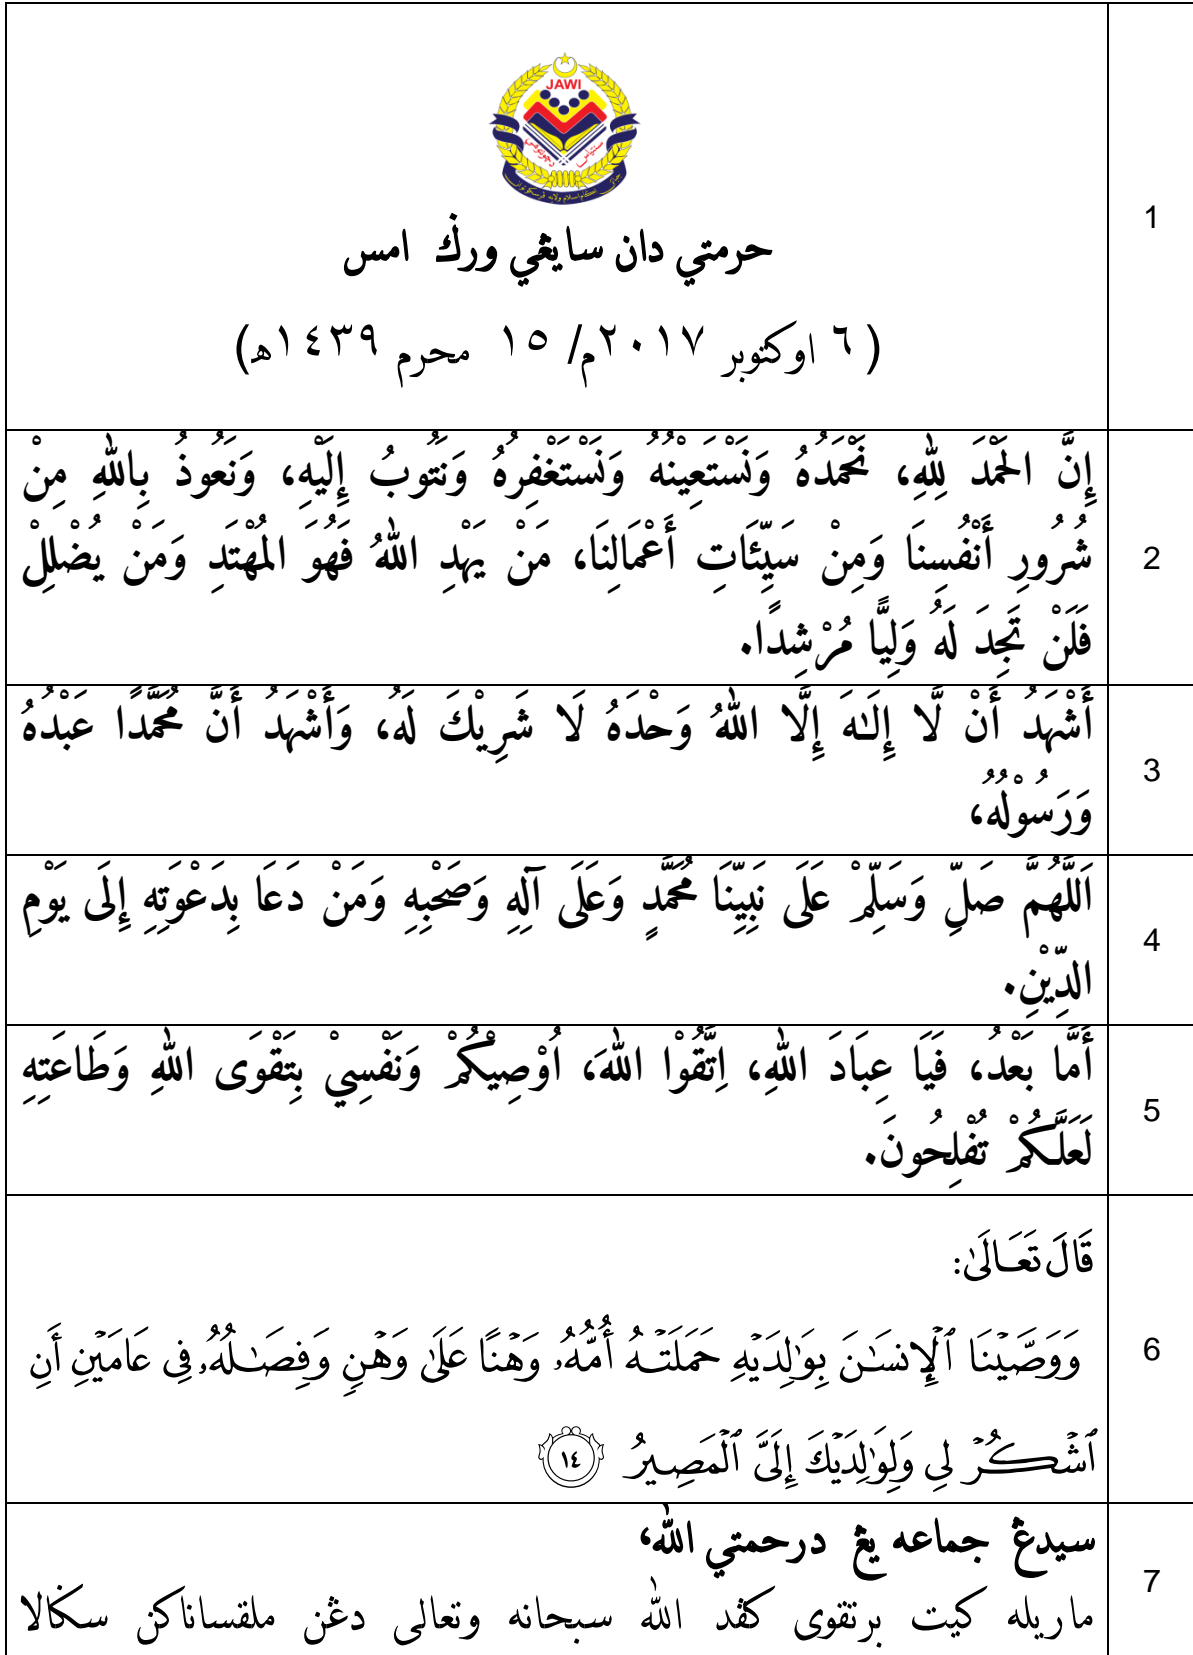 JAWI
حرمتي دان سايڠي ورݢ امس
(٦ اوكتوبر ٢٠١٧م/ ١٥ محرم ١٤٣٩ھ)
1
إِنَّ الْحَمْدَ لِلّٰهِ، نَحْمَدُهُ وَنَسْتَعِيْنُهُ وَنَسْتَغْفِرُهُ وَنَتُوبُ إِلَيْهِ، وَنَعُوذُ بِاللّٰهِ مِنْ
شُرُورِ أَنْفُسِنَا وَمِنْ سَيِّئَاتِ أَعْمَالِنَا، مَنْ يَهْدِ اللّٰهُ فَهُوَ المُهْتَدِ وَمَنْ يُضْلِلْ
فَلَنْ تَجِدَ لَهُ وَلِيًّا مُرْشِدًا.
2
أَشْهَدُ أَنْ لَّا إِلَـٰهَ إِلَّا اللّٰهُ وَحْدَهُ لَا شَرِيْكَ لَهُ، وَأَشْهَدُ أَنَّ مُحَمَّدًا عَبْدُهُ
وَرَسُوْلُهُ،
3
اَللَّهُمَّ صَلِّ وَسَلِّمْ عَلَى نَبِيِّنَا مُحَمَّدٍ وَعَلَى آلِهِ وَصَحْبِهِ وَمَنْ دَعَا بِدَعْوَتِهِ إِلَى يَوْمِ
الدِّيْنِ.
4
أَمَّا بَعْدُ، فَيَا عِبَادَ اللّٰهِ، اِتَّقُوْا اللّٰهَ، اُوْصِيْكُمْ وَنَفْسِيْ بِتَقْوَى اللّٰهِ وَطَاعَتِهِ
لَعَلَّكُمْ تُفْلِحُونَ.
5
قَالَ تَعَالَىٰ:
وَوَصَّيْنَا ٱلْإِنسَـٰنَ بِوَٰلِدَيْهِ حَمَلَتْهُ أُمُّهُۥ وَهْنًا عَلَىٰ وَهْنٍ وَفِصَـٰلُهُۥ فِى عَامَيْنِ أَنِ
ٱشْكُرْ لِى وَلِوَٰلِدَيْكَ إِلَىَّ ٱلْمَصِيرُ ١٤
6
سيدڠ جماعه يڠ درحمتي الله،
ماريله كيت برتقوى كڤد الله سبحانه وتعالى دڠن ملقساناكن سݢالا
7